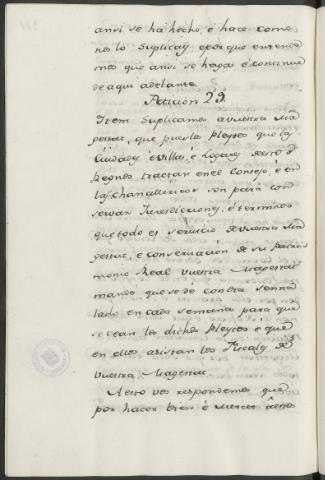 ansi se há hecho, é hace como
nos lo suplicays, porque entende
mos que ansi se haga é continue
de aqui adelante.
Peticion 29.
Item Suplicamos a vuestra Ma
gestad, que pues los Pleytos que las
Ciudades é Villas, é Lugares destos
Reynos tractan en el Consejo, é en
las Chancillerias son para con
servar Jurisdicciones, é terminos
que todo es servicio de vuestra Ma
gestad, é conservacion de su Patri
monio Real vuestra Magestad
mande que se dé con dia sena
lado en cada semana para que
se vean los dichos Pleytos é que
en ellos asistan los Fiscales de
vuestra Magestad.
A esto vos respondemos que
por hacer bien é merced á estos